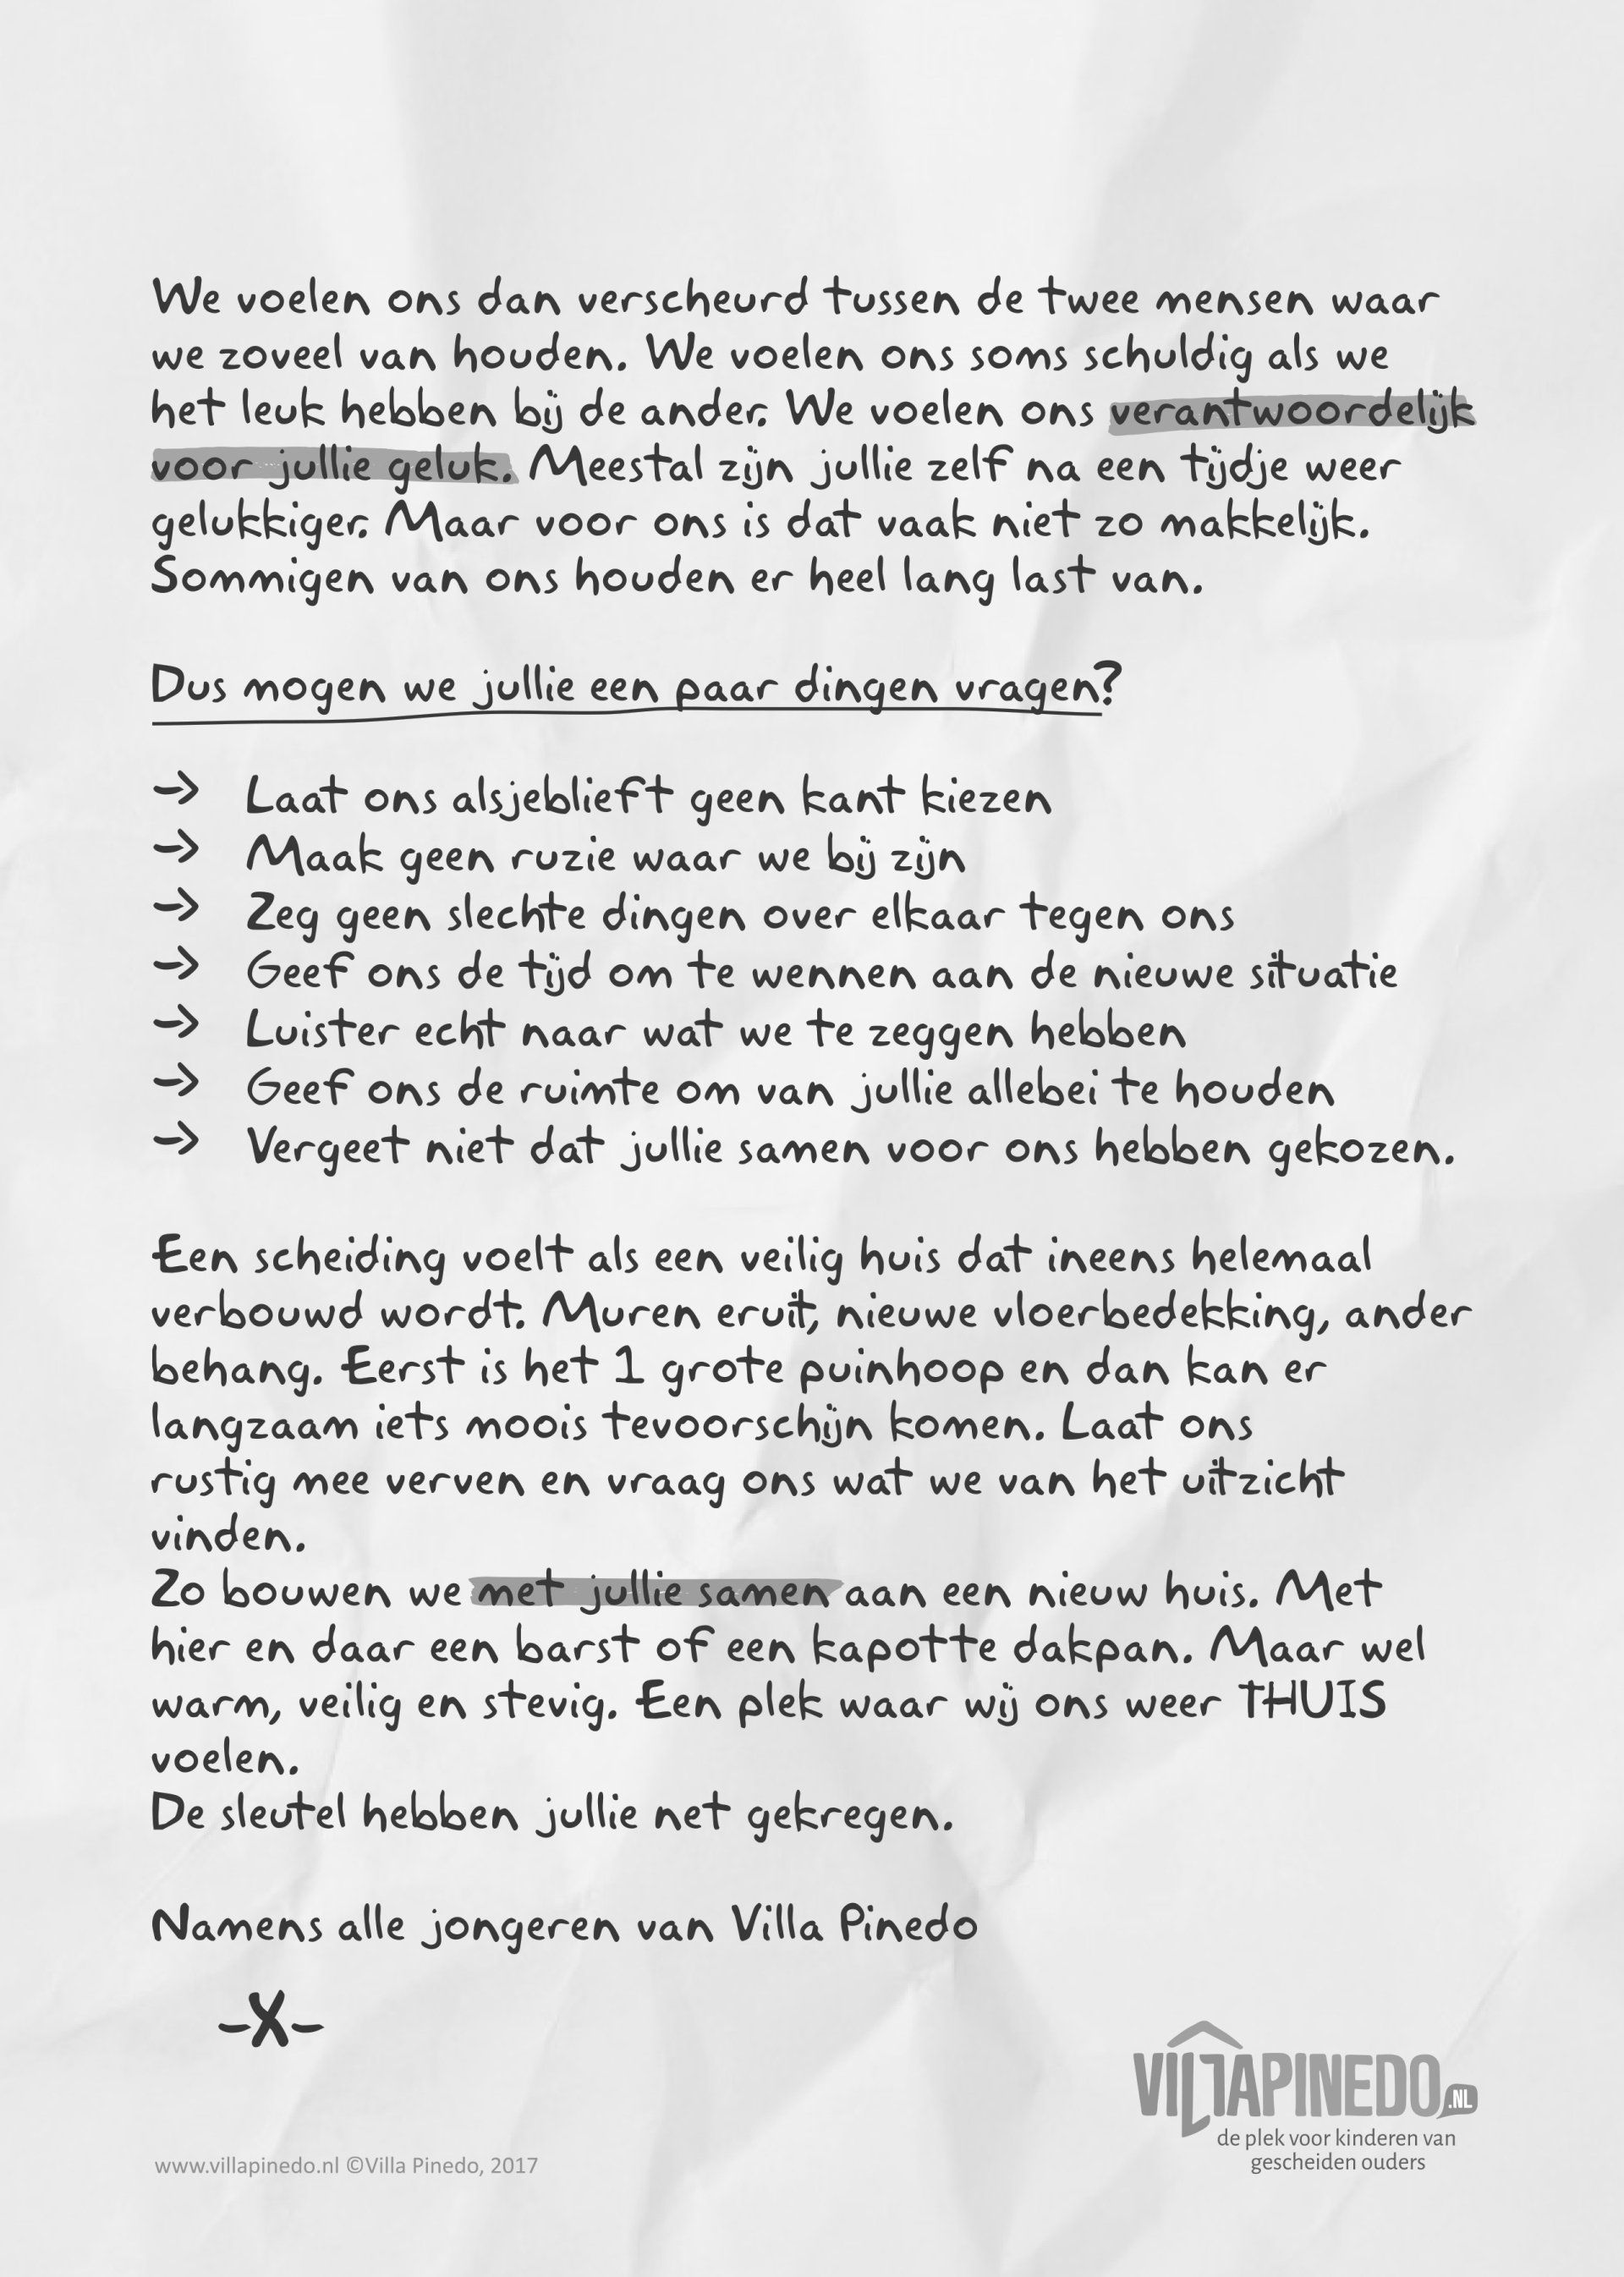 We voelen ons dan verscheurd tussen de twee mensen waar
we zoveel van houden. We voelen ons soms schuldig als we
het leuk hebben bij de ander. We voelen ons verantwoordelijk
voor jullie geluk. Meestal zijn jullie zelf na een tijdje weer
gelukkiger. Maar voor ons is dat vaak niet zo makkelijk.
Sommigen van ons houden er heel lang last van.
Dus mogen we jullie een paar dingen vragen?
→ Laat ons alsjeblieft geen kant kiezen
→ Maak geen ruzie waar we bij zijn
→ Zeg geen slechte dingen over elkaar tegen ons
→ Geef ons de tijd om te wennen aan de nieuwe situatie
→ Luister echt naar wat we te zeggen hebben
→ Geef ons de ruimte om van jullie allebei te houden
→ Vergeet niet dat jullie samen voor ons hebben gekozen.
Een scheiding voelt als een veilig huis dat ineens helemaal
verbouwd wordt. Muren eruit, nieuwe vloerbedekking, ander
behang. Eerst is het 1 grote puinhoop en dan kan er
langzaam iets moois tevoorschijn komen. Laat ons
rustig mee verven en vraag ons wat we van het uitzicht
vinden.
Zo bouwen we met jullie samen aan een nieuw huis. Met
hier en daar een barst of een kapotte dakpan. Maar wel
warm, veilig en stevig. Een plek waar wij ons weer THUIS
voelen.
De sleutel hebben jullie net gekregen.
Namens alle jongeren van Villa Pinedo
-X-
VILLAPINEDO.NL
de plek voor kinderen van
gescheiden ouders
www.villapinedo.nl ©Villa Pinedo, 2017